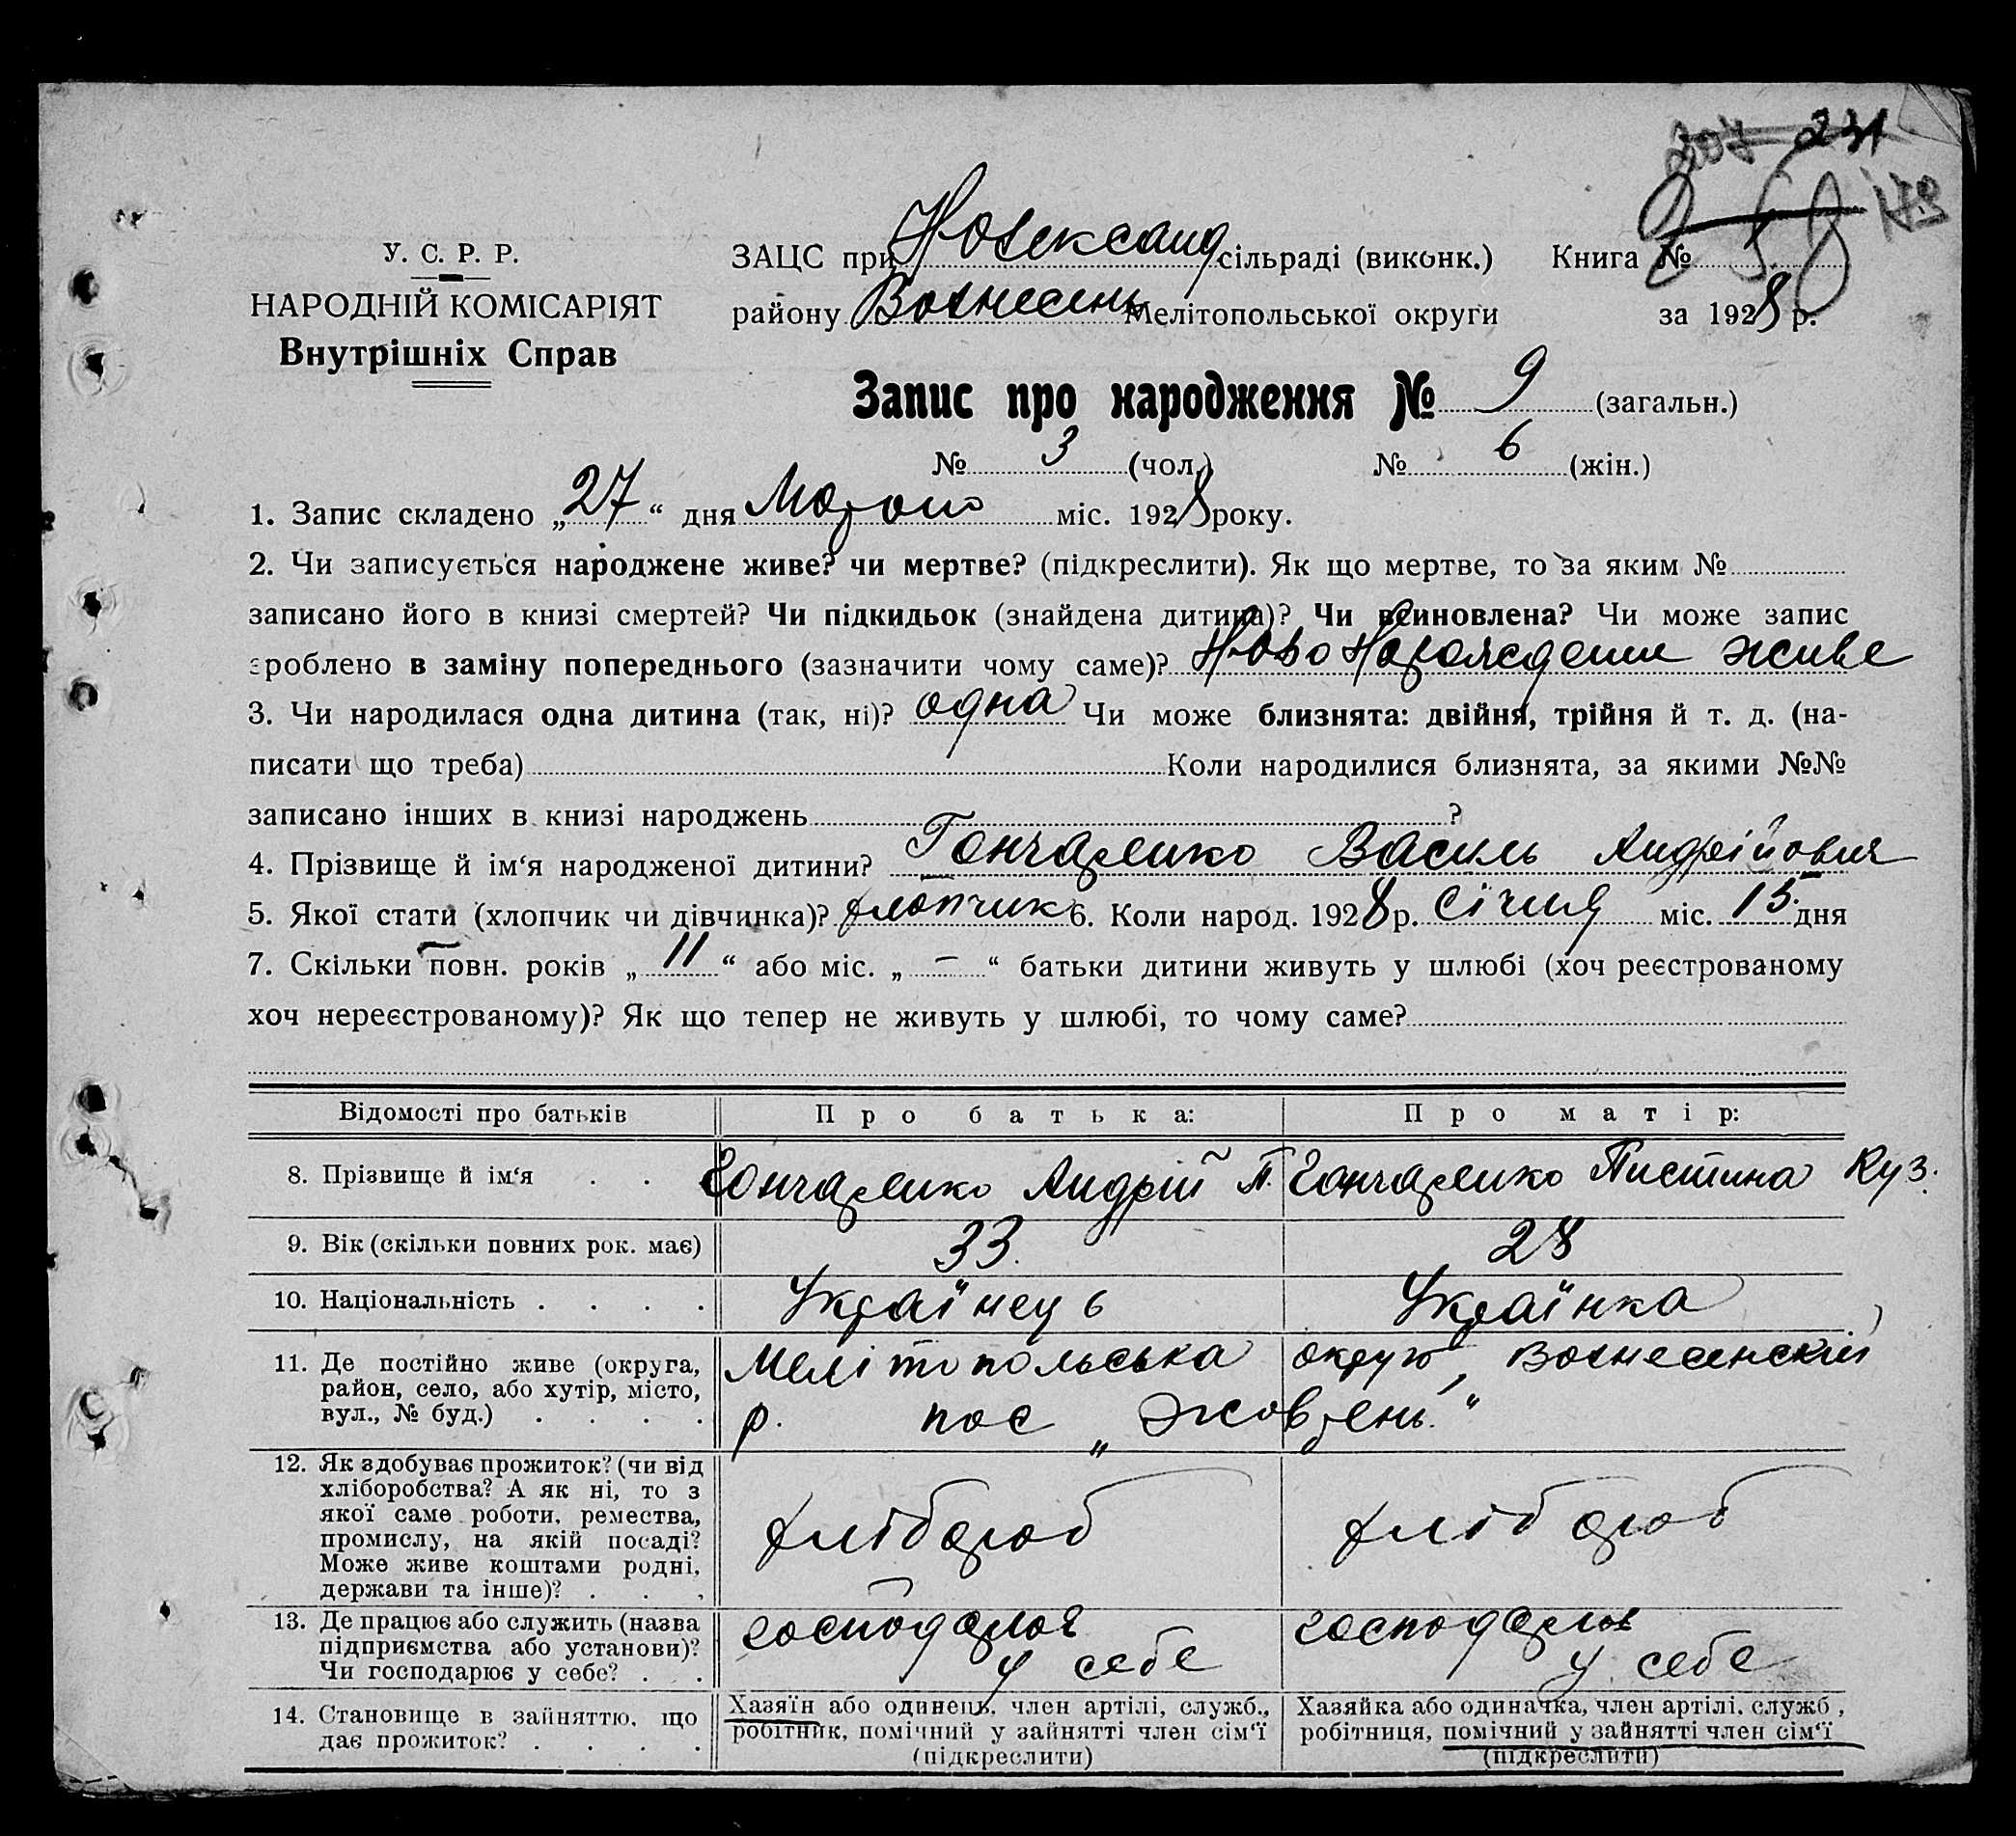 231
У. С. Р. Р.
НАРОДНІЙ КОМІСАРІЯТ
Внутрішніх Справ
ЗАЦС при Новоександ сільраді (виконк.) Книга №
району Вознесень Мелітопольської округи за 1928 р.
Запис про народження № 9 (загальн.)
№ 3 (чол.) № 6 (жін.)
1. Запис складено „27“ дня міс. 1928 року.
2. Чи записується народжене живе? чи мертве? (підкреслити). Як що мертве, то за яким №
записано його в книзі смертей? Чи підкидьок (знайдена дитина)? Чи всиновлена? Чи може запис
зроблено в заміну попереднього (зазначити чому саме)? живе
3. Чи народилася одна дитина (так, ні)? одна Чи може близнята: двійня, трійня й т. д. (на-
писати що треба) Коли народилися близнята, за якими №№
записано інших в книзі народжень ?
4. Прізвище й ім‘я народженої дитини? Гончаренко Василь Андрійович
5. Якої стати (хлопчик чи дівчинка)? хлопчик 6. Коли народ. 1928 р. січня міс. 15 дня
7. Скільки повн. років „11“ або міс. „–“ батьки дитини живуть у шлюбі (хоч реєстрованому
хоч нереєстрованому)? Як що тепер не живуть у шлюбі, то чому саме?
Відомості про батьків Про батька: Про матір:
8. Прізвище й ім‘я Гончаренко Андрій П. Гончаренко Пистина Куз.
9. Вік (скільки повних рок. має) 33. 28
10. Національність Українець Українка
11. Де постійно живе (округа,
район, село, або хутір, місто,
вул., № буд.)
Мелітопольська округ, Вознесенский
р. пос „Жовтень“
12. Як здобуває прожиток? (чи від
хліборобства? А як ні, то з
якої саме роботи, ремества,
промислу, на якій посаді?
Може живе коштами родні,
держави та інше)?
хлібороб хлібороб
13. Де працює або служить (назва
підприємства або установи)?
Чи господарює у себе?
господарює господарює
у себе у себе
14. Становище в зайняттю, що
дає прожиток?
Хазяїн або одинець, член артілі, служб.,
робітник, помічний у зайнятті член сім‘ї
(підкреслити)
Хазяйка або одиначка, член артілі, служб,
робітниця, помічний у зайнятті член сім‘ї
(підкреслити)